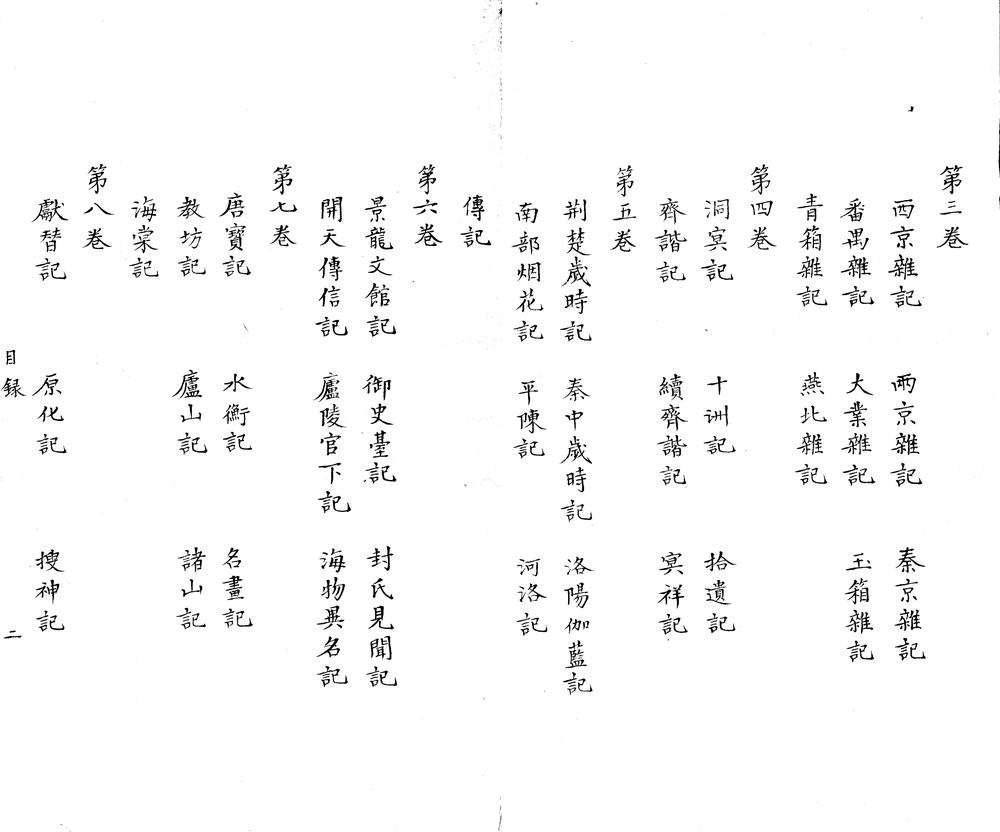 第三卷
西京雜記 兩京雜記 秦京雜記
番禺雜記 大業雜記 玉箱雜記
青箱雜記 燕北雜記
第四卷
洞冥記 十洲記 拾遺記
齊諧記 續齊諧記 冥祥記
第五卷
荆楚歲時記 秦中歲時記 洛陽伽藍記
南部烟花記 平陳記 河洛記
傳記
第六卷
景龍文館記 御史臺記 封氏見聞記
開天傳信記 廬陵官下記 海物異名記
第七卷
唐寶記 水衡記 名畫記
教坊記 廬山記 諸山記
海棠記
第八卷
獻替記 原化記 搜神記
目録 二